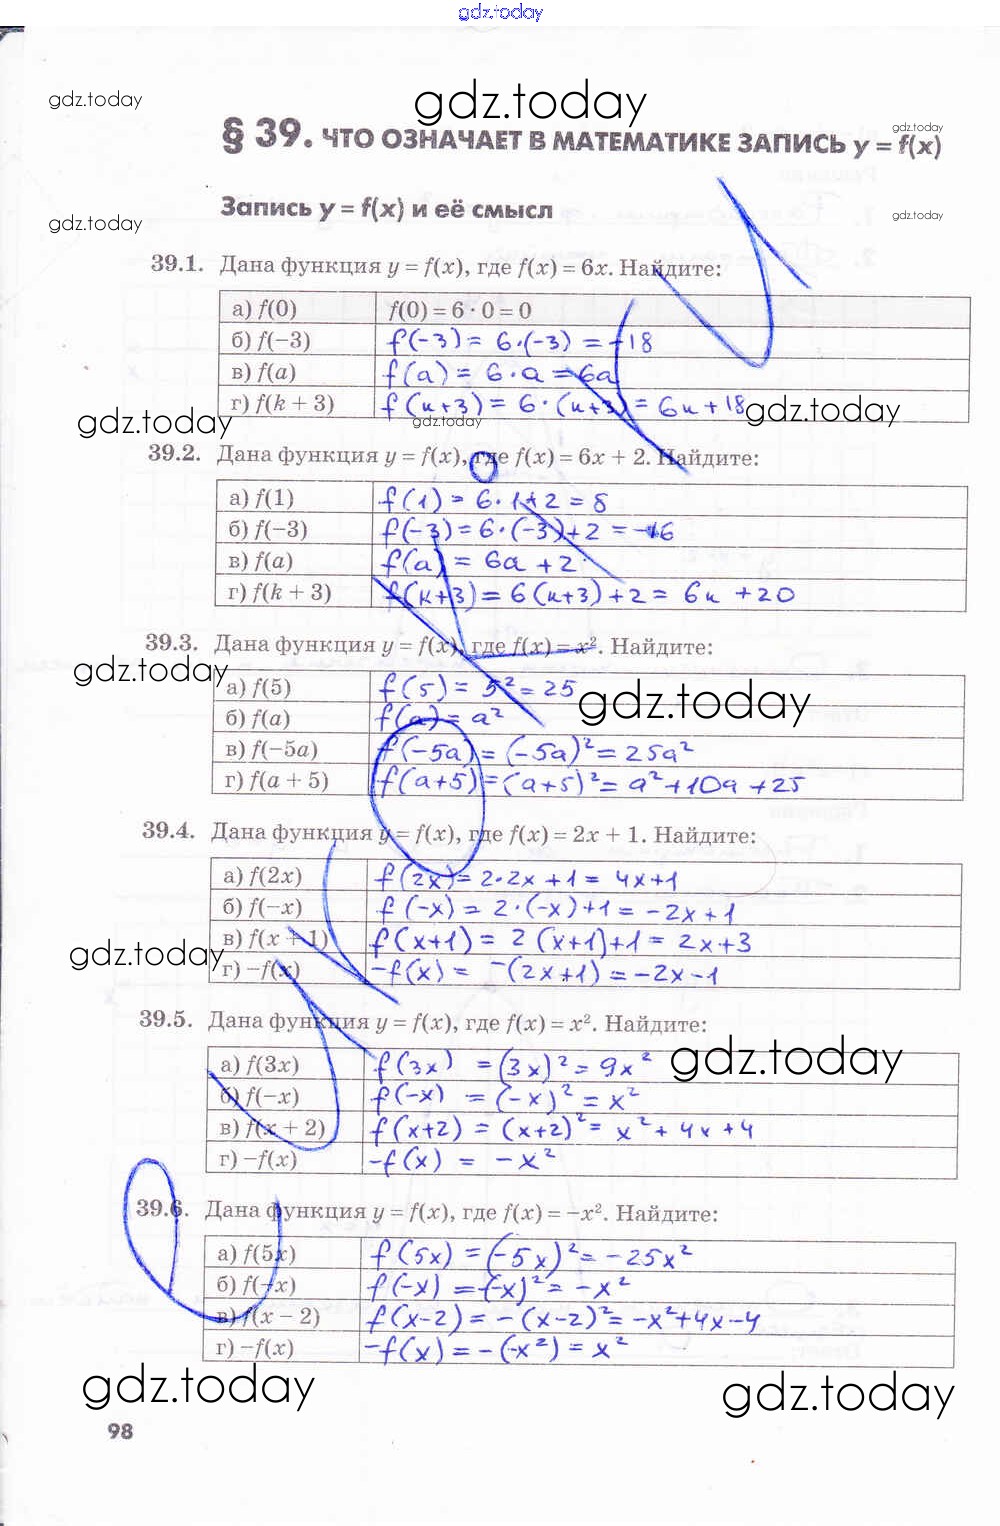 gdz.today
gdz.today
gdz.today
§ 39. ЧТО ОЗНАЧАЕТ В МАТЕМАТИКЕ ЗАПИСЬ y = f(x)
gdz.today
Запись y = f(x) и её смысл
gdz.today
gdz.today
39.1. Дана функция y = f(x), где f(x) = 6x. Найдите:
а) f(0) f(0) = 6 · 0 = 0
б) f(−3) f(-3) = 6·(-3) = -18
в) f(a) f(a) = 6·a = 6a
г) f(k + 3) f(k+3) = 6·(k+3) = 6k+18
gdz.today
gdz.today
gdz.today
39.2. Дана функция y = f(x), где f(x) = 6x + 2. Найдите:
а) f(1) f(1) = 6·1+2 = 8
б) f(−3) f(-3) = 6·(-3)+2 = -16
в) f(a) f(a) = 6a + 2
г) f(k + 3) f(k+3) = 6(k+3)+2 = 6k +20
39.3. Дана функция y = f(x), где f(x) = x². Найдите:
gdz.today
gdz.today
а) f(5) f(5) = 5² = 25
б) f(a) f(a) = a²
в) f(−5a) f(-5a) = (-5a)² = 25a²
г) f(a + 5) f(a+5) = (a+5)² = a²+10a+25
39.4. Дана функция y = f(x), где f(x) = 2x + 1. Найдите:
а) f(2x) f(2x) = 2·2x+1 = 4x+1
б) f(−x) f(-x) = 2·(-x)+1 = -2x+1
в) f(x + 1) f(x+1) = 2(x+1)+1 = 2x+3
gdz.today
г) −f(x) -f(x) = -(2x+1) = -2x-1
39.5. Дана функция y = f(x), где f(x) = x². Найдите:
gdz.today
а) f(3x) f(3x) = (3x)² = 9x²
б) f(−x) f(-x) = (-x)² = x²
в) f(x + 2) f(x+2) = (x+2)² = x²+4x+4
г) −f(x) -f(x) = -x²
39.6. Дана функция y = f(x), где f(x) = −x². Найдите:
а) f(5x) f(5x) = (-5x)² = -25x²
б) f(−x) f(-x) = (-x)² = -x²
в) f(x − 2) f(x-2) = -(x-2)² = -x²+4x-4
г) −f(x) -f(x) = -(-x²) = x²
gdz.today
gdz.today
98